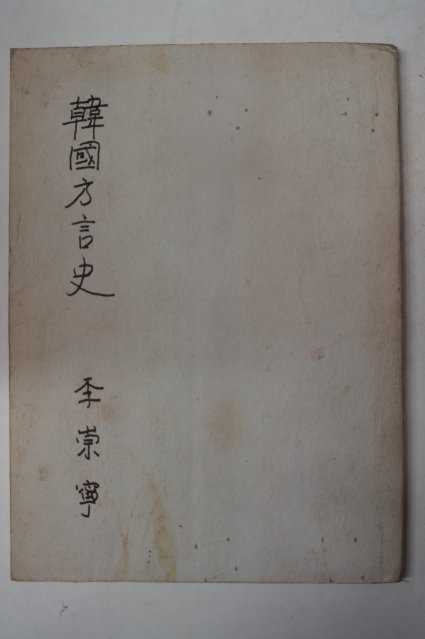 韓國方言史
李崇寧